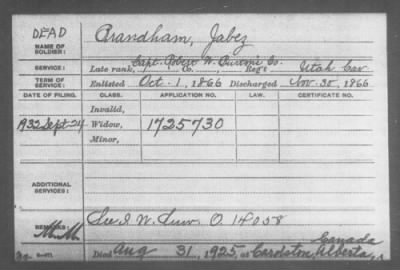 DEAD
NAME OF SOLDIER: Brandham, Jabez
SERVICE: Late rank, Capt. Robert W. Co., Reg't Utah Cav
TERM OF SERVICE: Enlisted Oct. 1, 1866 Discharged Nov. 30, 1866
DATE OF FILING. CLASS. APPLICATION NO. LAW. CERTIFICATE NO.
Invalid,
1932 Sept 24 Widow, 1725730
Minor,
ADDITIONAL SERVICES:
See I. W. Surv. O. 14058
REMARKS:
Canada
Died Aug 31, 1925, at Cardston, Alberta,